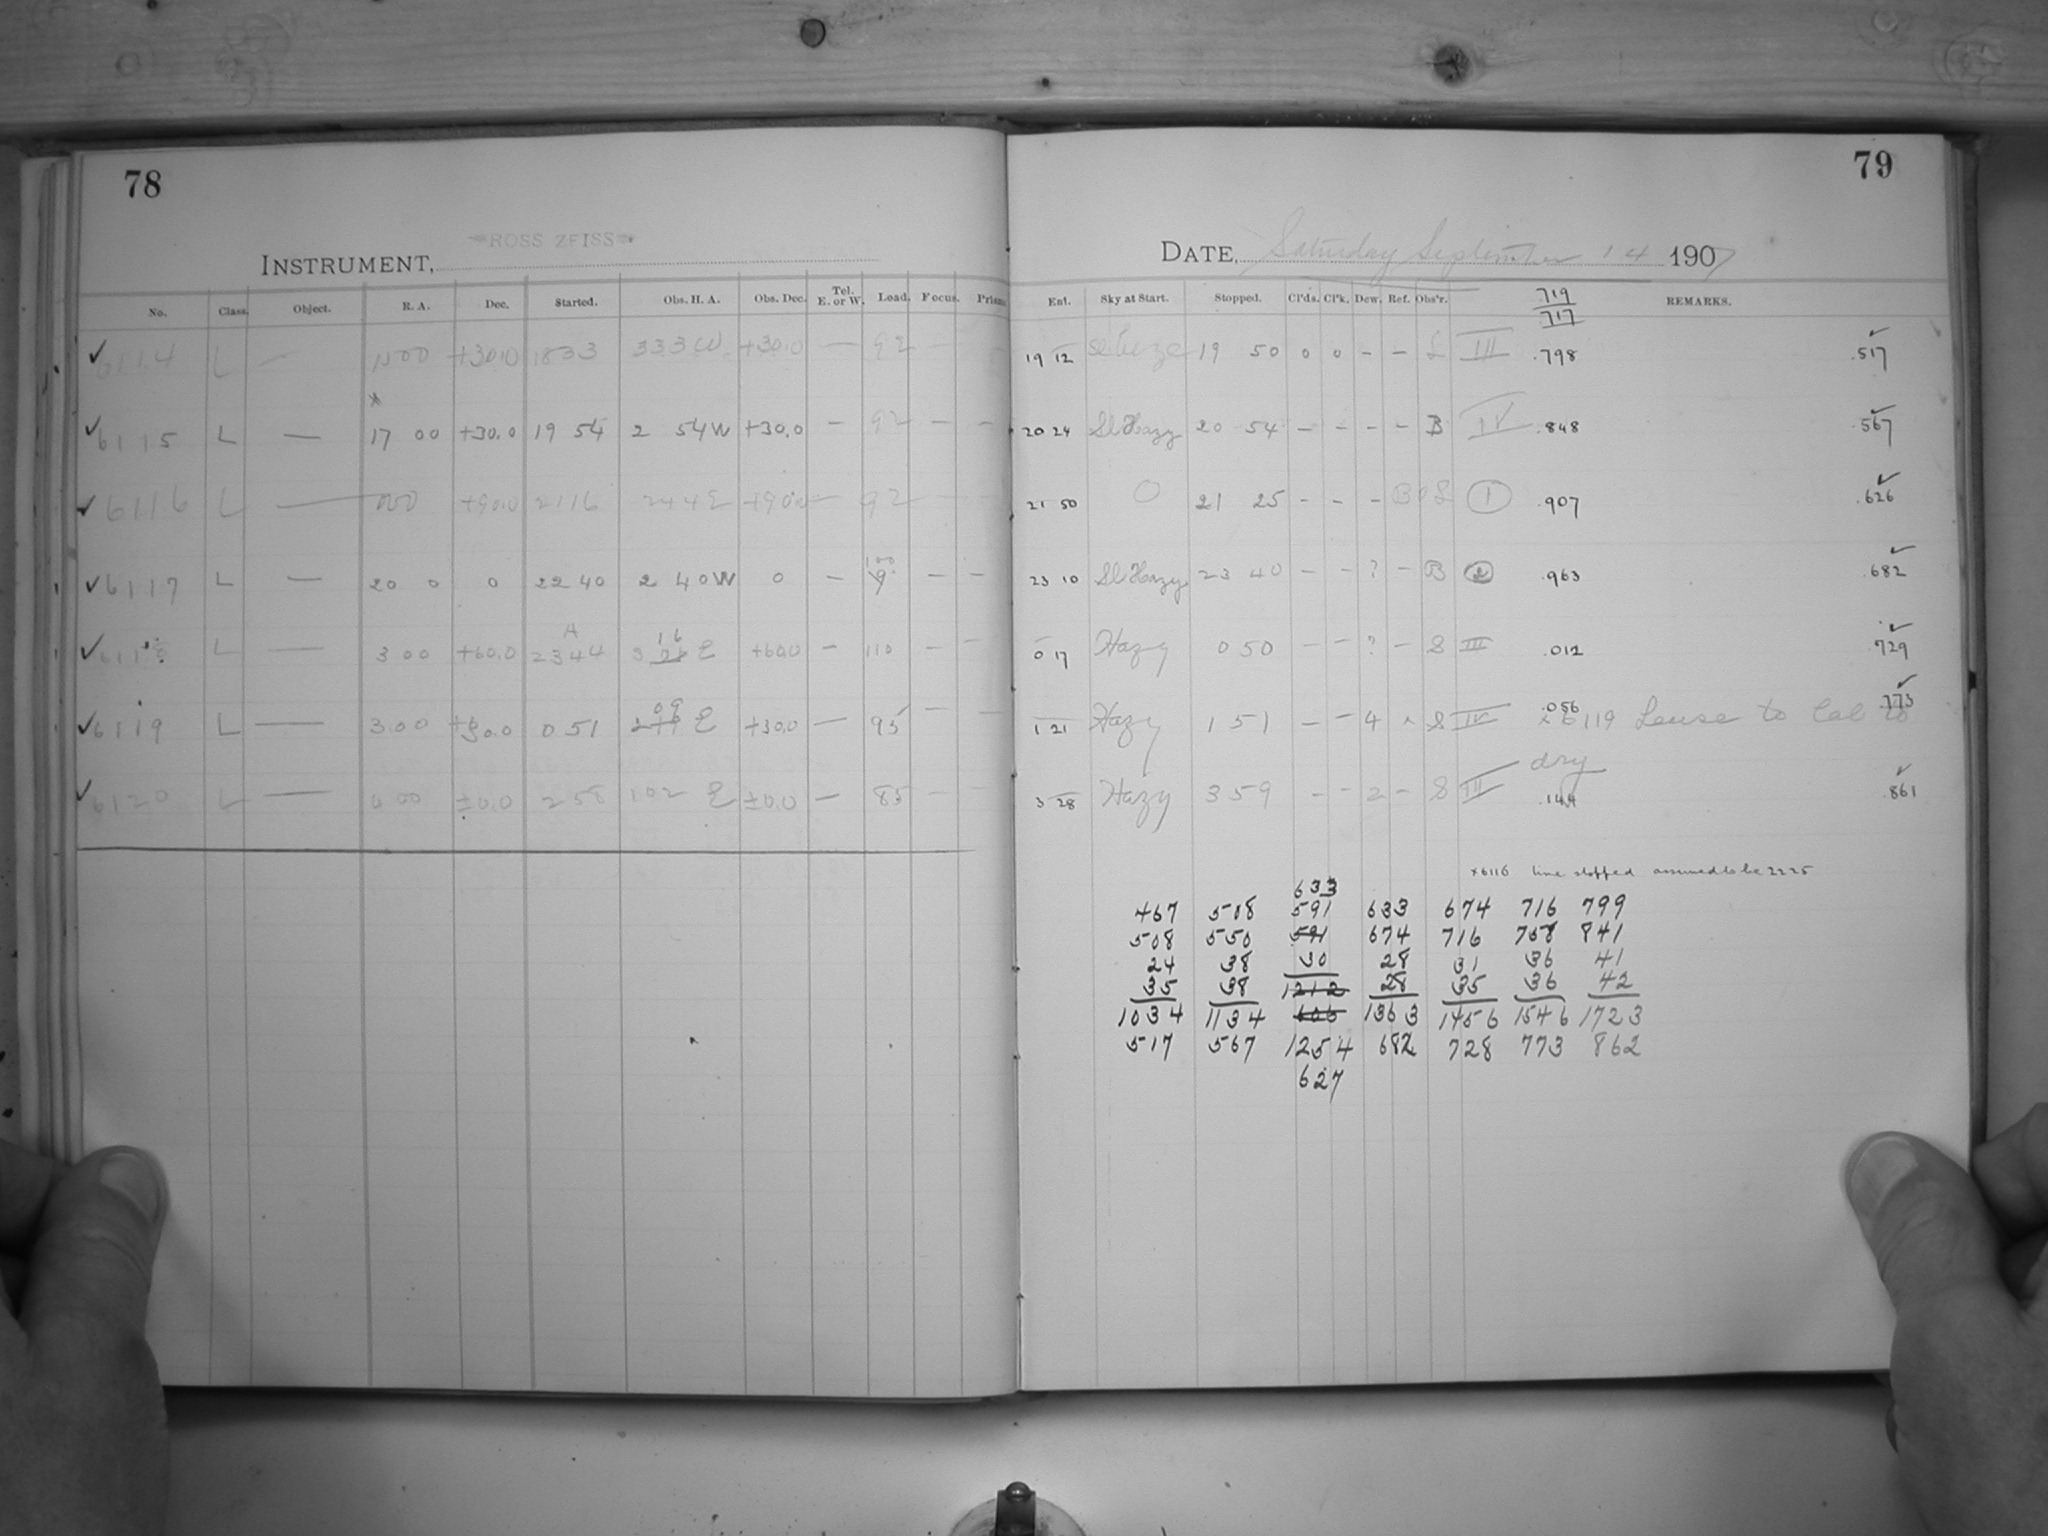 78
79
ROSS ZEISS
INSTRUMENT,
DATE, Saturday September 14 1907
No. Class. Object. R. A. Dec. Started. Obs. H. A. Obs. Dec. Tel. E. or W. Load. Focus. Prism.
Ent. Sky at Start. Stopped. Cl'ds. Cl'k. Dew. Ref. Obs'r. 719 717 REMARKS.
✓ 6114 L — +30.0 1833 333 W +30.0 — 92
19 12 19 50 0 0 - - III .798 .517 ✓
✓ 6115 L — 17 00 +30.0 19 54 2 54 W +30.0 — 92 — —
20 24 Sl Hazy 20 54 — - - - B IV .848 .567 ✓
✓ 6116 L — +90.0 2116 244 E +90.0 — 92
21 50 0 21 25 - - - 1 .907 .626 ✓
✓ 6117 L — 20 0 0 22 40 2 40 W 0 — 100 — —
23 10 Sl Hazy 23 40 - - ? - B 2 .963 .682 ✓
✓ L — 3 00 +60.0 2344 3 16 E +60.0 — 110 —
0 17 Hazy 0 50 — - ? - S III .012 .729 ✓
✓ 6119 L — 3.00 0 51 09 E +30.0 — 95 — —
1 21 Hazy 1 51 — - 4 × S IV .056 .773 ✓
× 6119 Lense to Cal to
dry
✓ 6120 L — 0 00 ±0.0 2 58 102 E ±0.0 — 85 — —
3 28 Hazy 3 59 - - 2 - S III .144 .861 ✓
× 6116 time stopped assumed to be 22 25
633
467 508 591 633 674 716 799
508 550 591 674 716 758 841
24 38 30 28 31 36 41
35 38 1212 28 35 36 42
1034 1134 606 1363 1456 1546 1723
517 567 1254 682 728 773 862
627